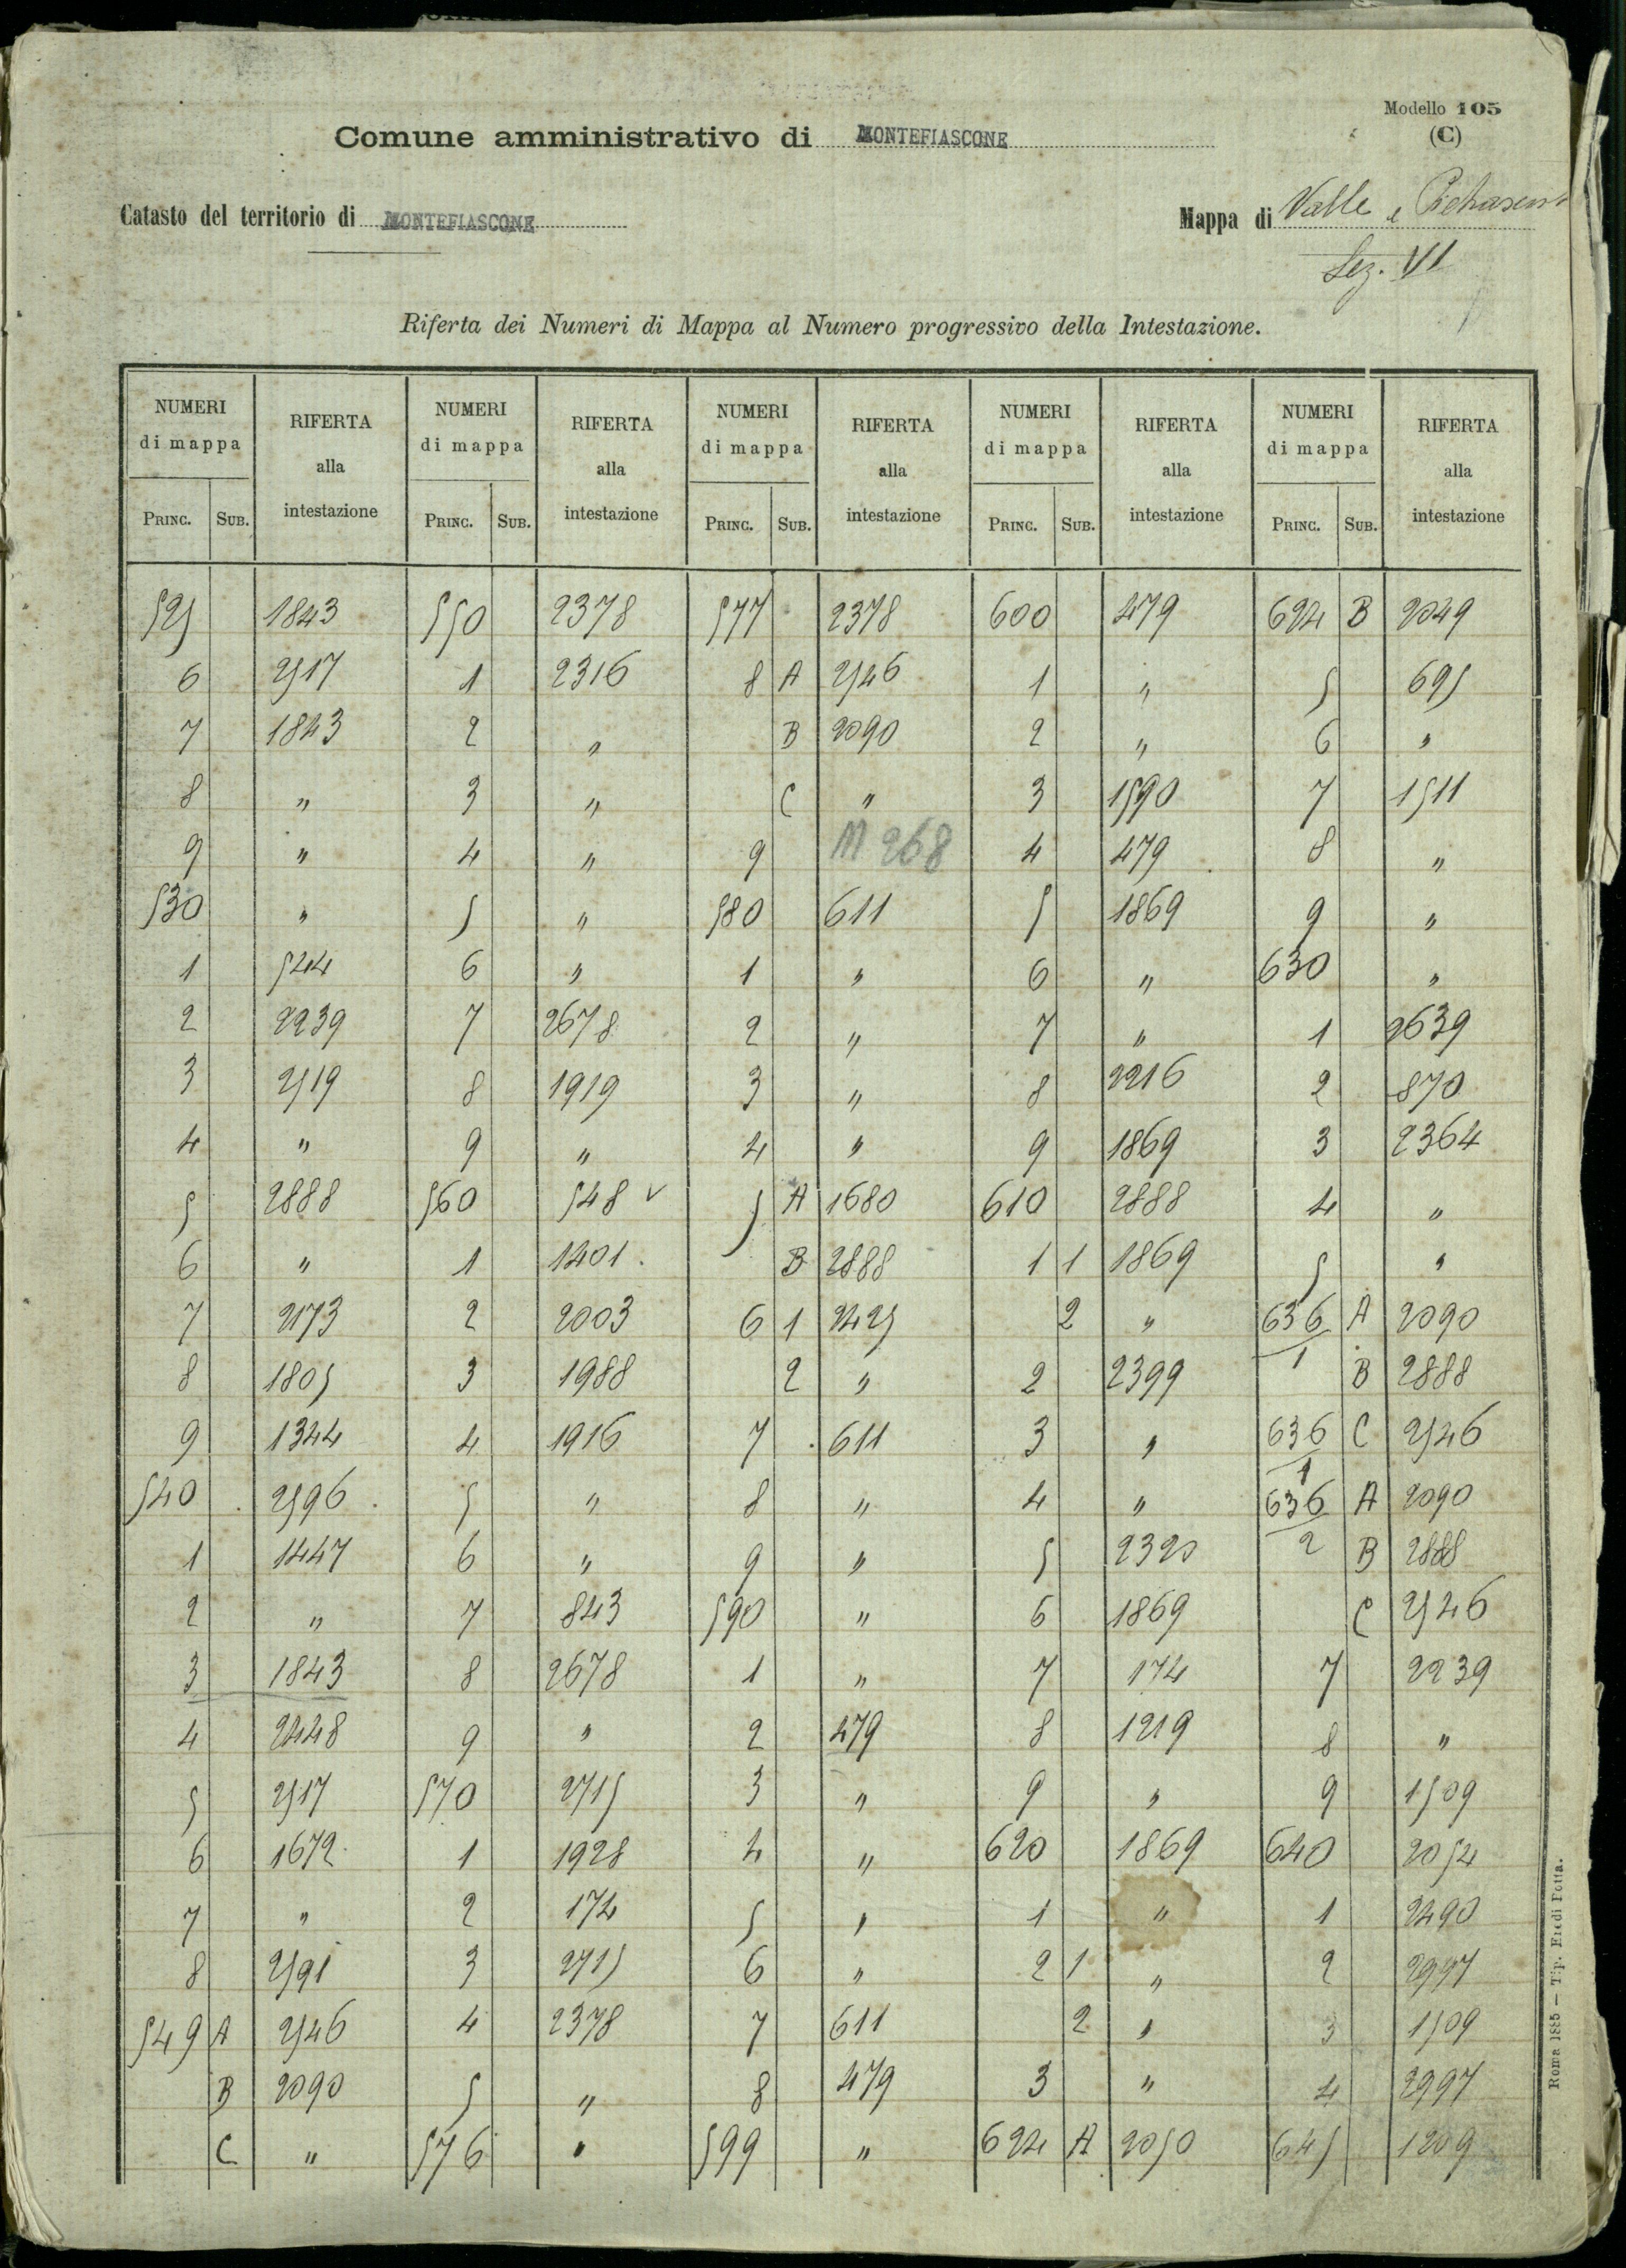 Modello 105
(C)
Comune amministrativo di MONTEFIASCONE
Catasto del territorio di MONTEFIASCONE
Mappa di Valle e
Sez. VI
Riferta dei Numeri di Mappa al Numero progressivo della Intestazione.
NUMERI di mappa RIFERTA alla intestazione NUMERI di mappa RIFERTA alla intestazione NUMERI di mappa RIFERTA alla intestazione NUMERI di mappa RIFERTA alla intestazione NUMERI di mappa RIFERTA alla intestazione
PRINC. SUB. PRINC. SUB. PRINC. SUB. PRINC. SUB. PRINC. SUB.
525 1843 550 2378 577 2378 600 479 624 B 2049
6 2517 1 2316 8 A 2546 1 " 5 695
7 1843 2 " B 2090 2 " 6 "
8 " 3 " C " 3 1590 7 1511
9 " 4 " 9 M 268 4 479 8 "
530 " 5 " 580 611 5 1869 9 "
1 544 6 " 1 " 6 " 630 "
2 2239 7 2678 2 " 7 " 1 2639
3 2519 8 1919 3 " 8 2216 2 870
4 " 9 " 4 " 9 1869 3 2364
5 2888 560 548 v 5 A 1680 610 2888 4 "
6 " 1 1401 B 2888 1 1 1869 5 "
7 2173 2 2003 6 1 2425 2 " 636/1 A 2090
8 1805 3 1988 2 " 2 2399 B 2888
9 1344 4 1916 7 611 3 " 636/1 C 2546
540 2596 5 " 8 " 4 " 636/2 A 2090
1 1447 6 " 9 " 5 2320 B 2888
2 " 7 843 590 " 6 1869 C 2546
3 1843 8 2678 1 " 7 174 7 2239
4 2448 9 " 2 479 8 1219 8 "
5 2517 570 2715 3 " 9 " 9 1509
6 1672 1 1928 4 " 620 1869 640 2054
7 " 2 174 5 " 1 " 1 2490
8 2591 3 2715 6 " 2 1 " 2 2997
549 A 2546 4 2378 7 611 2 " 3 1509
B 2090 5 " 8 479 3 " 4 2997
C " 576 " 599 " 624 A 2050 645 1209
Roma 1885 — Tip. Eredi Botta.